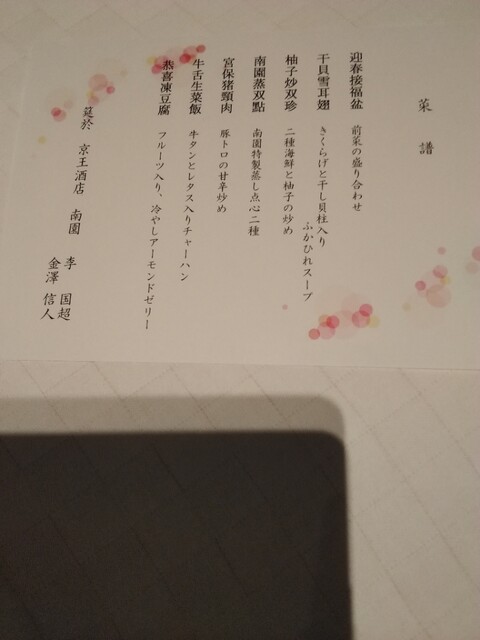 菜譜
迎春接福盆 前菜の盛り合わせ
干貝雪耳翅 きくらげと干し貝柱入り
ふかひれスープ
柚子炒双珍 二種海鮮と柚子の炒め
南園蒸双點 南園特製蒸し点心二種
宮保猪頸肉 豚トロの甘辛炒め
牛舌生菜飯 牛タンとレタス入りチャーハン
恭喜凍豆腐 フルーツ入り、冷やしアーモンドゼリー
莚於 京王酒店 南園 李 国超
金澤 信人